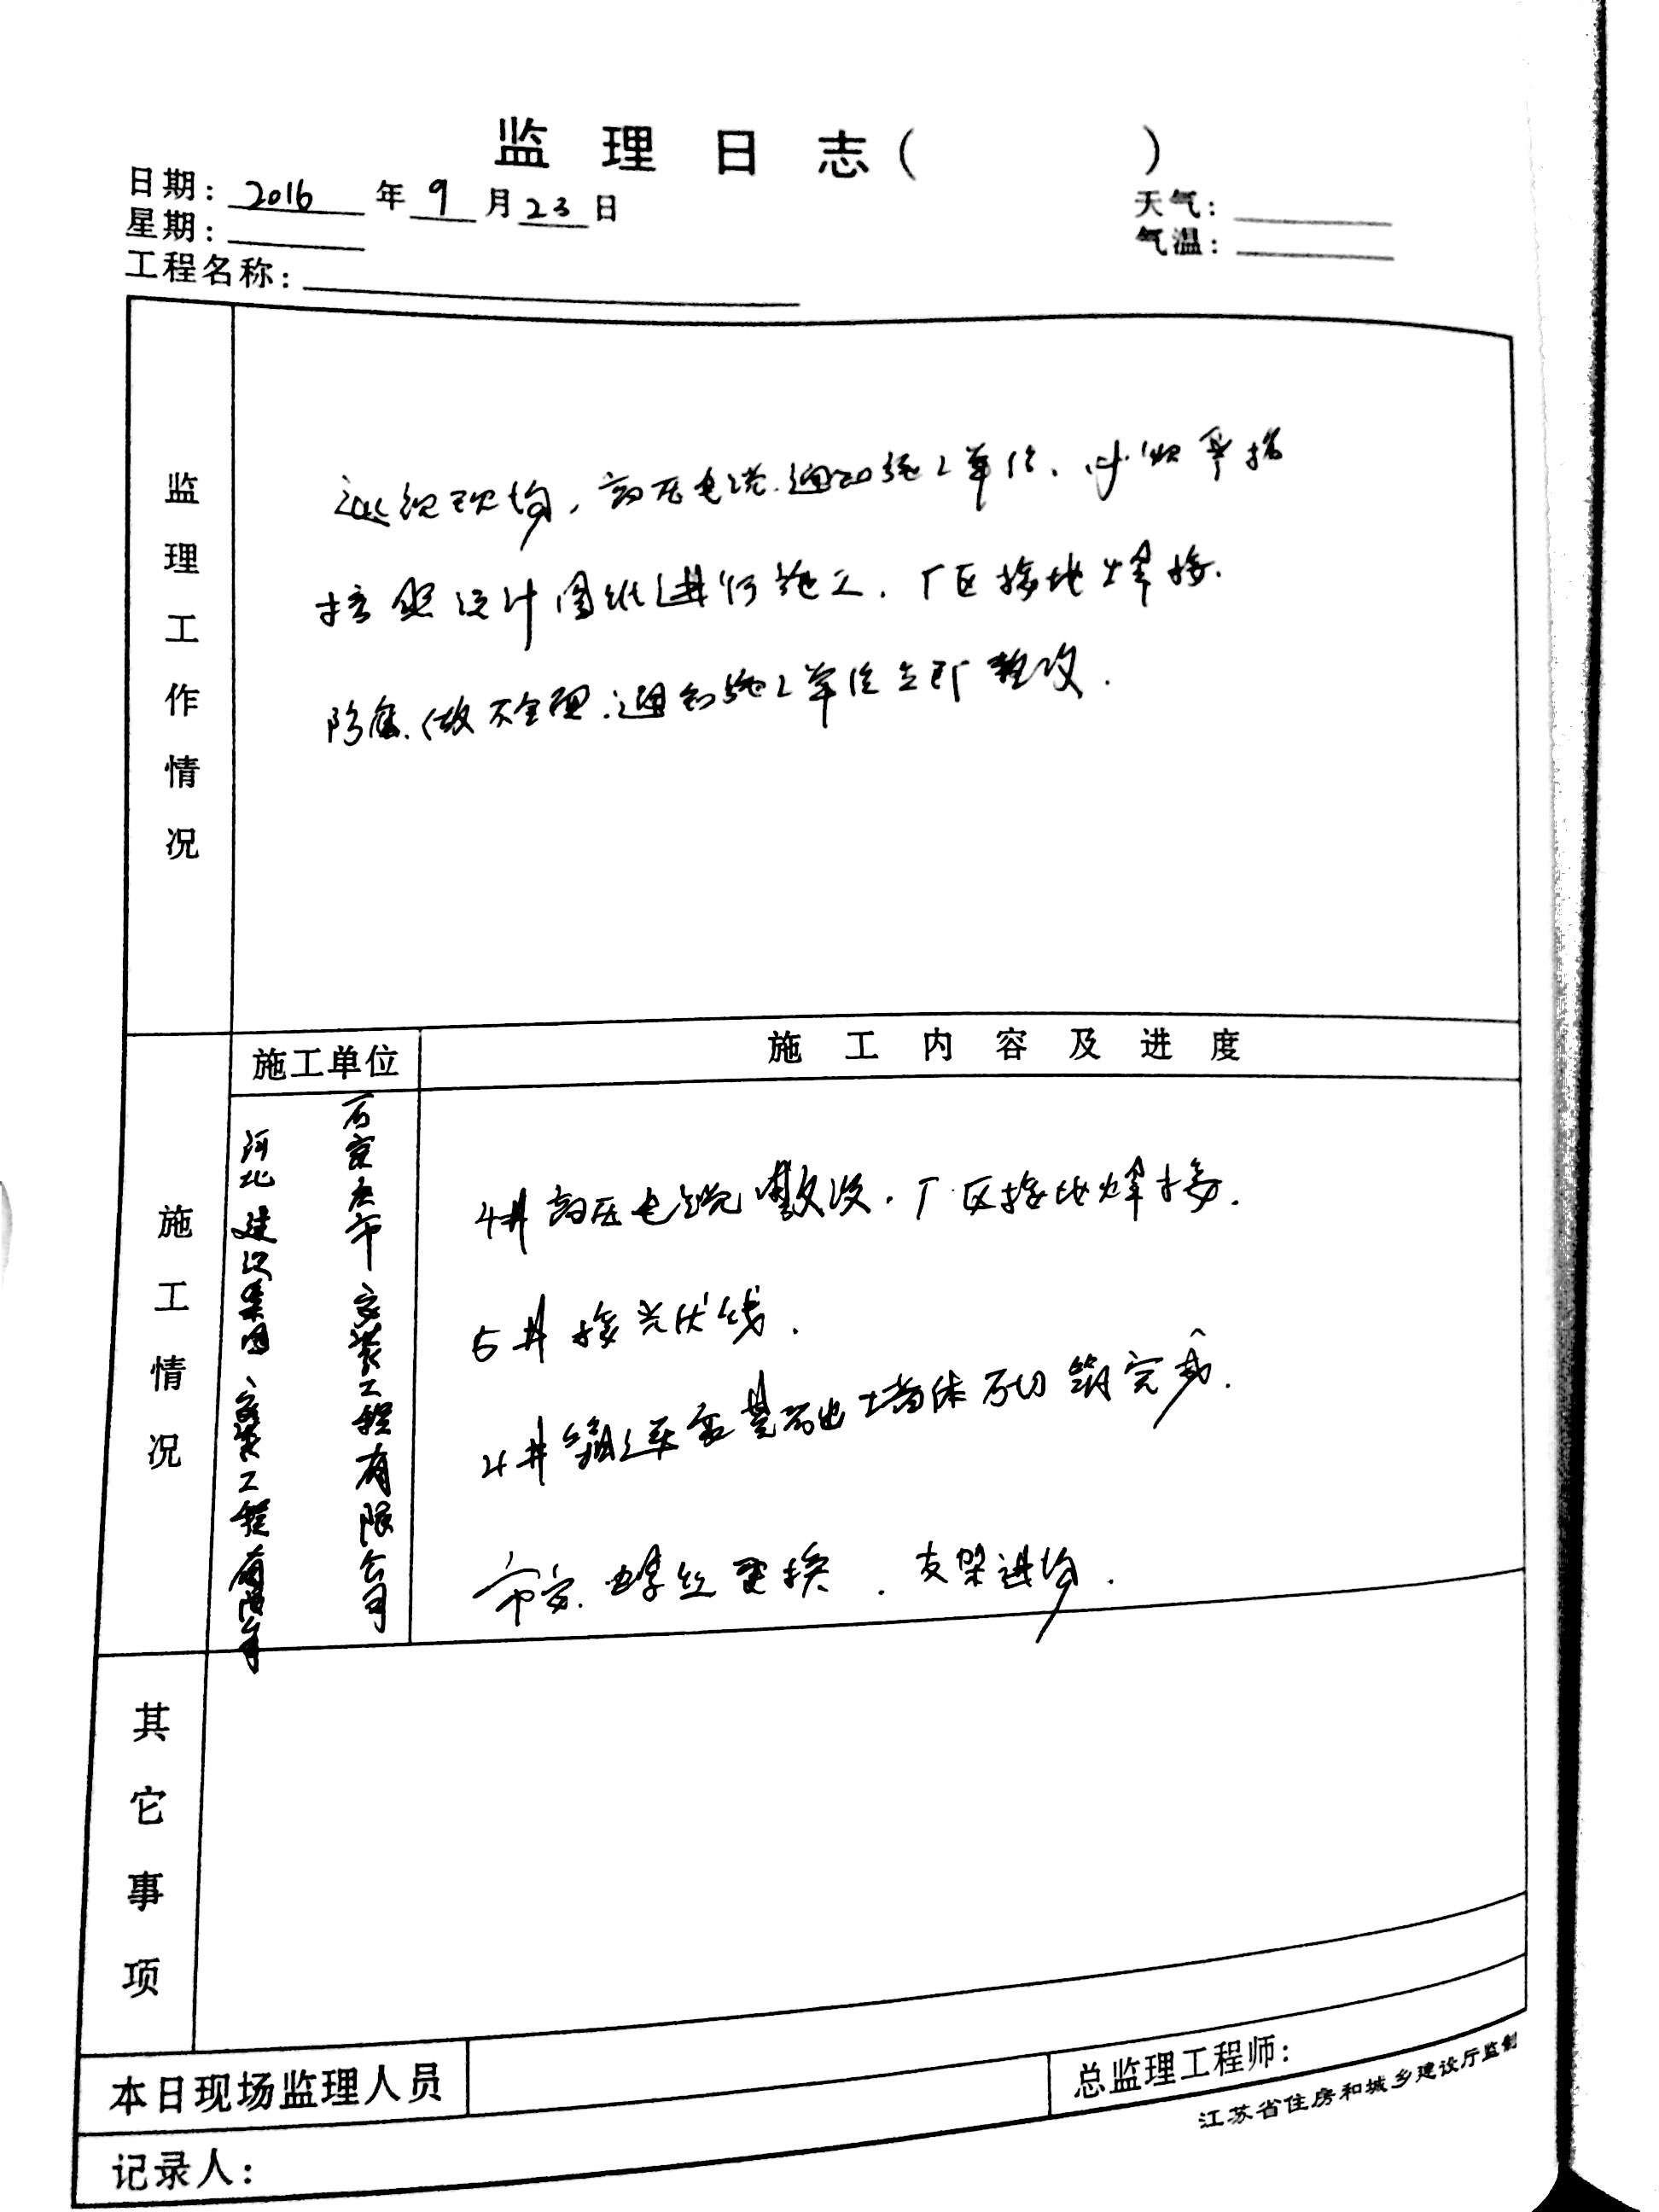 监理日志（ ）
日期：2016年9月23日
天气：
星期：
气温：
工程名称：
监理工作情况
巡视现场，高压电缆.通知施工单位.必须严格
按照设计图纸进行施工.厂区接地焊接.
防腐.做不全面.通知施工单位立即整改.
施工情况
施工单位
施工内容及进度
石家庄市安装工程有限公司
河北建设集团安装工程有限公司
4#高压电缆敷设.厂区接地焊接.
5#接光伏线.
4#箱逆变基础墙体砌筑完成.
市安.螺丝更换.支架进场.
其它事项
本日现场监理人员
总监理工程师：
记录人：
江苏省住房和城乡建设厅监制